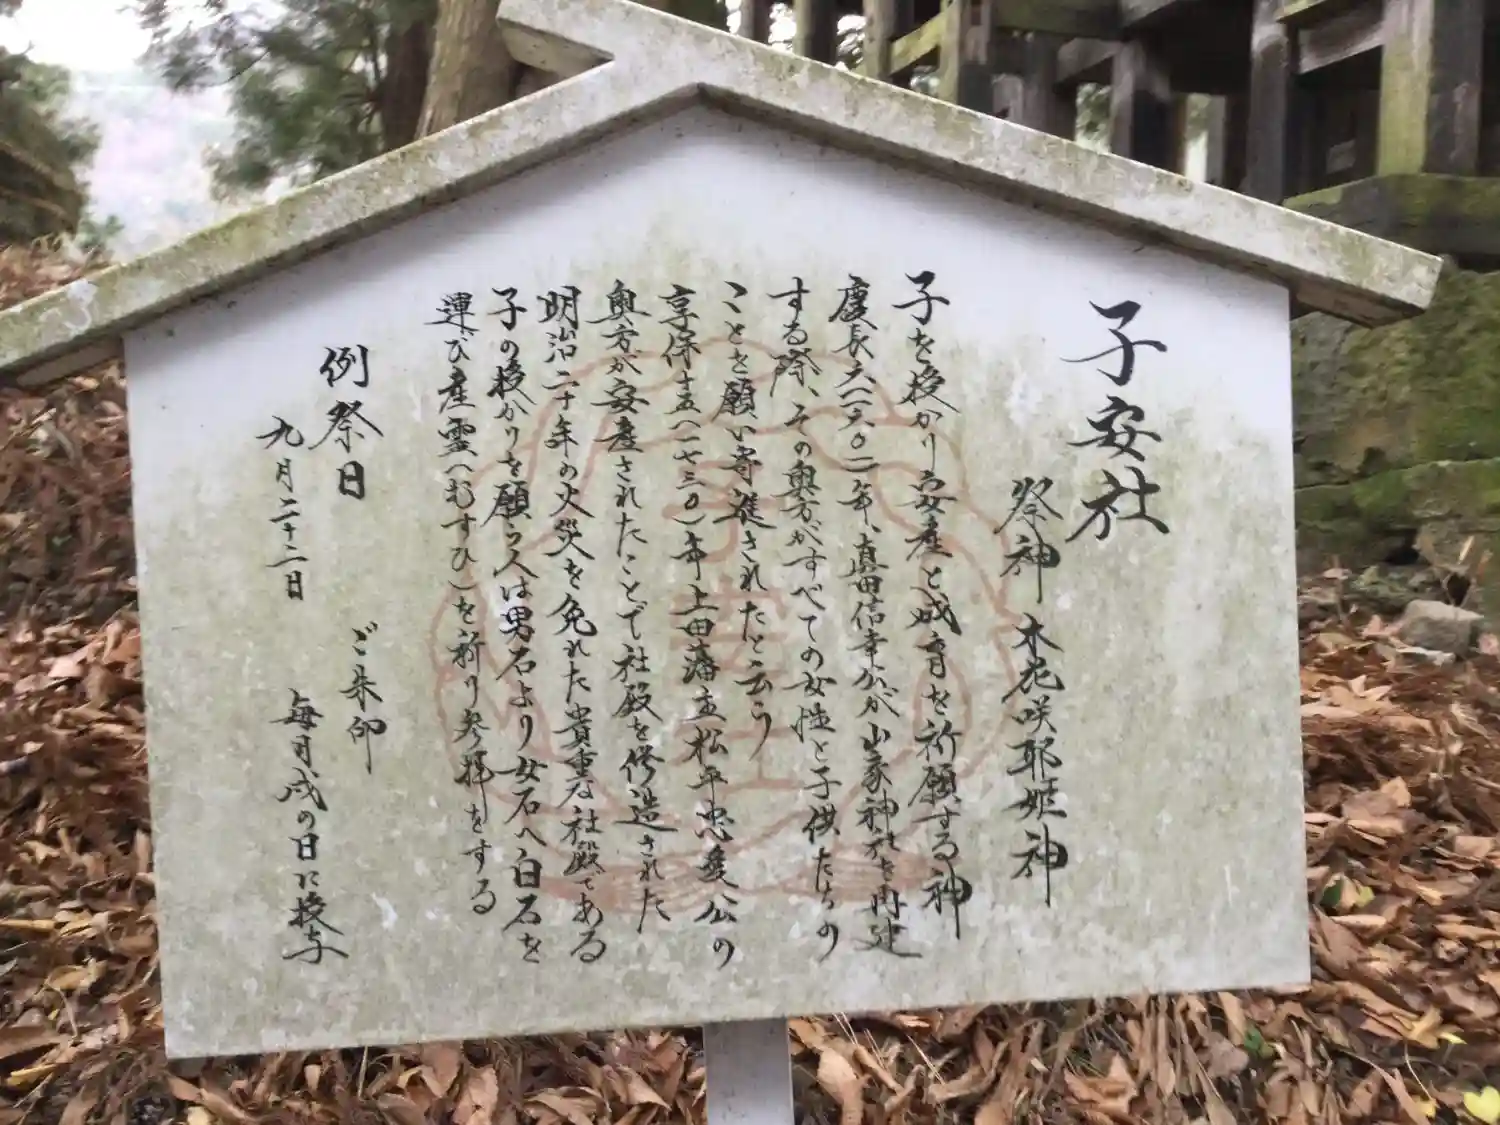 子安社
祭神 木花咲耶姫神
子を授かり安産と成育を祈願する神
慶長六(一六〇一)年、真田信幸公が山家神社を再建
する際、その奥方がすべての女性と子供たちの
ことを願い寄進されたと云う
享保十五(一七三〇)年上田藩主松平忠愛公の
奥方が安産されたことで社殿を修造された
明治二十年の火災を免れた貴重な社殿である
子の授かりを願う人は男石より女石へ白石を
運び産霊(むすひ)を祈り参拝をする
例祭日
九月二十二日
ご朱印
毎月戌の日に授与
子安社